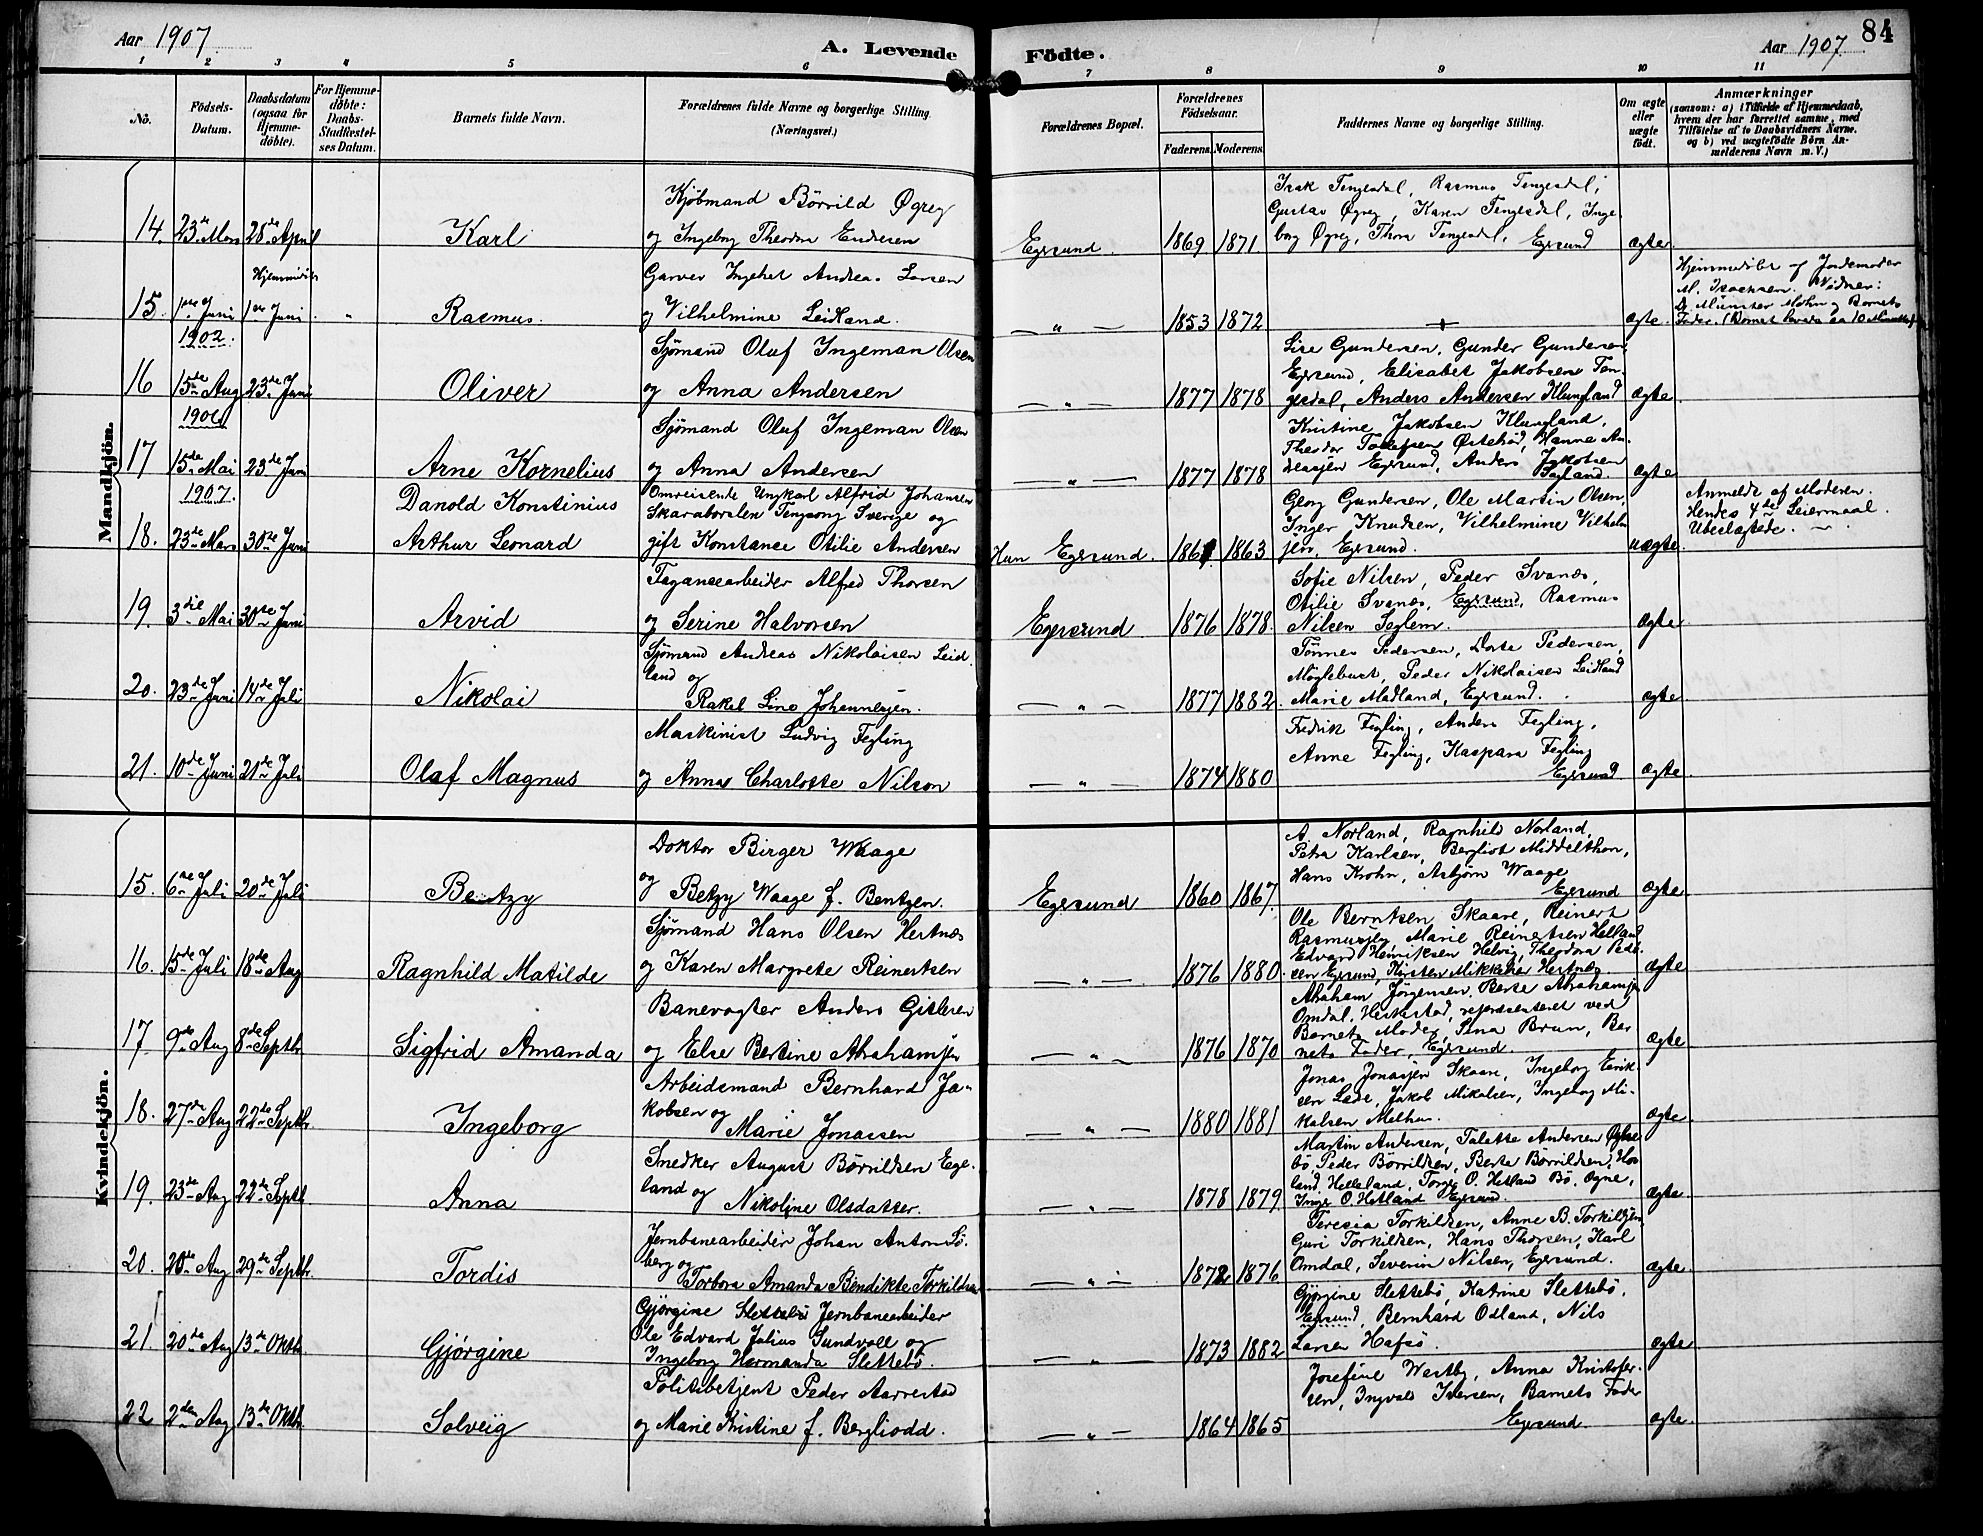 Aar 1907.
A. Levende Födte.
Aar 1907.
84
1 2 3 4 5 6 7 8 9 10 11
No.
Födsels-Datum.
Daabsdatum (ogsaa for Hjemme-döbte).
For Hjemme-döbte: Daabs-Stadfæstel-ses Datum.
Barnets fulde Navn.
Forældrenes fulde Navne og borgerlige Stilling. (Næringsvei.)
Forældrenes Bopæl.
Forældrenes Födselsaar.
Faderens. Moderens.
Faddernes Navne og borgerlige Stilling.
Om ægte eller uægte födt.
Anmærkninger
(saasom: a) i Tilfælde af Hjemmedaab,
hvem der har forrettet samme, med
Tilföielse af to Daabsvidners Navne,
og b) ved uægtefödte Börn An-
melderens Navn m. V.)
Mandkjön.
14. 23de Mars 28de April Karl
Kjöbmand Börrild Øgrey
og Ingeborg Theodora Endresen
Egersund 1869 1871
Isak Tengesdal, Rasmus Tengesdal,
Gustav Øgrey, Karen Tengesdal, Inge-
borg Øgrey, Thora Tengesdal, Egersund
ægte
15. 1ste Juni Hjemmedöbt 1ste Juni " Rasmus.
Garver Ingebret Andreas Larsen
og Vilhelmine Leidland.
— " — 1853 1872
ægte.
Hjemmedöbt af Jordemoder
M. Isachsen. Vidner:
Dr Münster Mohn og Barnets
Fader. (Barnet levede ca 10 Minutter)
1902.
16 15de Aug 23de Juni Oliver
Sjömand Oluf Ingeman Olsen
og Anna Andersen
— " — 1877 1878
Lise Gundersen, Gunder Gundersen
Egersund, Elisabet Jakobsen Ten-
gesdal, Anders Andersen Klungland
ægte
1906
17 15de Mai 23de Juni Arne Kornelius
Sjömand Oluf Ingeman Olsen
og Anna Andersen
— " — 1877 1878
Kristine Jakobsen Klungland,
Theodor Tollefsen Østebö, Hanne An-
dreassen Egersund, Anders Jakobsen
ægte
1907.
18. 23de Mars 30te Juni
Danold Konstinius
Arthur Leonard
Omreisende Ungkarl Alfrid Johansen
Skaraborslen Tengsong Sverige og
gift Konstance Otilie Andersen
Hun Egersund. 1863
Georg Gundersen, Ole Martin Olsen,
Inger Knudsen, Vilhelmine Vilhelm
sen, Egersund.
uægte.
Anmeldt af Moderen.
Hendes 4de Leiermaal.
Ubeslægtede.
19. 3die Mai 30te Juni Arvid
Fayancearbeider Alfred Thorsen
og Serine Halvorsen
Egersund 1876 1878.
Sofie Nilsen, Peder Svanæs,
Otilie Svanæs, Egersund, Rasmus
Nilsen Seglem.
ægte
20. 23de Juni 14de Juli Nikolai
Sjömand Andreas Nikolaisen Leid-
land og
Rakel Line Johannessen.
— " — 1877 1882.
Tönnes Pedersen, Dorte Pedersen,
Möglebust, Peder Nikolaisen Leidland
Marie Madland, Egersund.
ægte
21. 10de Juni 21de Juli Olaf Magnus
Maskinist Ludvig Fegling
og Anna Charlotte Nilson
— " — 1874 1880
Fredrik Fegling, Anders Fegling,
Anne Fegling, Kaspara Fegling
Egersund
ægte
Kvindekjön.
15. 6te Juli 20de Juli Bentzy
Doktor Birger Waage
og Betzy Waage f. Bentzen.
Egersund 1860 1867.
A. Norland, Ragnhild Norland,
Petra Karlsen, Bergliot Middelthon,
Hans Krohn, Asbjörn Waage
Egersund
ægte
16. 15de Juli 18de Aug Ragnhild Matilde
Sjömand Hans Olsen Hestnæs
og Karen Margrete Reinertsen
— " — 1876 1880.
Ole Berntsen Skaare, Reinert
Rasmussen, Marie Reinertsen Helland
Edvard Henriksen Helvig, Theodora Peder-
sen Egersund, Kirsten Mikkelsen Hestnæs.
ægte
17. 9de Aug 8de Septbr Sigfrid Amanda
Banevogter Anders Gislesen
og Else Bertine Abrahamsen
— " — 1876 1870
Abraham Jörgensen, Berte Abrahamsen
Omdal, Heskestad, repræsenteret ved
Barnets Moder, Lina Brun, Bar-
nets Fader, Egersund.
ægte
18. 27de Aug 22de Septbr Ingeborg
Arbeidsmand Bernhard Ja-
kobsen og
Marie Jonassen
— " — 1880 1881
Jonas Jonassen Skaare, Ingeborg Eirik-
sen Lade, Jakob Mikalsen, Ingeborg Mi-
kalsen Melhus.
ægte
19. 23de Aug 22de Septb Anna
Snedker August Börrildsen Ege-
land og
Nikoline Olsdatter.
— " — 1878 1879
Martin Andersen, Talette Andersen
bö, Peder Börrildsen, Berte Börrildsen, Hov-
land, Helleland, Torger O. Hetland Bö, Ogne,
Inger O. Hetland Egersund
ægte
20. 20de Aug 29de Septbr. Tordis
Jernbanearbeider Johan Anton Sö-
berg og
Torbora Amanda Bendikte Torkildsen
— " — 1872 1876
Teresia Torkildsen, Anne B. Torkildsen
Guri Torkildsen, Hans Thorsen, Karl
Omdal, Severin Nilsen, Egersund.
ægte.
21 20de Aug 13de Oktbr. Gjörgine
Gjörgine Slettebö Jernbanearbeider
Ole Edvard Julius Sundvoll og
Ingeborg Hermanda Slettebö.
— " — 1873 1882
Gjörgine Slettebö, Katrine Slettebö,
Egersund, Bernhard Odland, Nils
Larsen Hafsö.
ægte
22 2den Aug 13de Oktbr. Solveig
Politibetjent Peder Aarrestad
og Marie Kristine f. Bergliodd.
— " — 1864 1865
Josefine Westby, Anna Kristofer-
sen, Ingvald Iversen, Barnets Fader
Egersund
ægte.